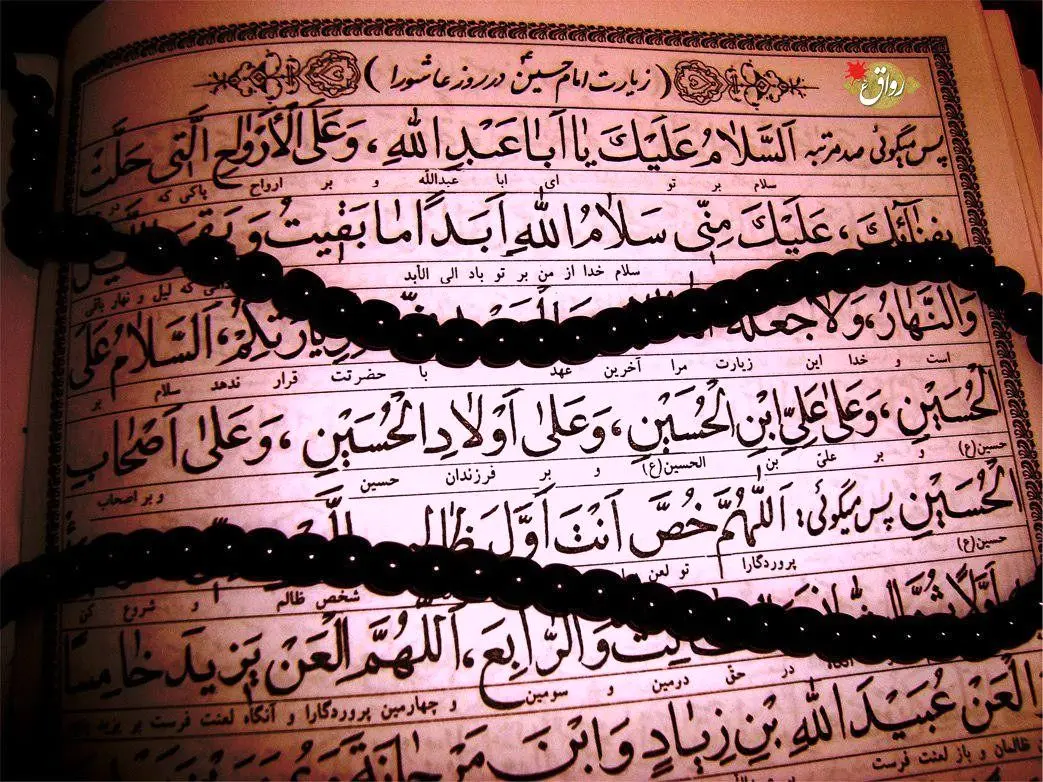 ( زیارت امام حسین ع در روز عاشورا )
رواق
پس میگوئی صد مرتبه اَلسَّلامُ عَلَیْكَ یا اَبا عَبْدِ اللهِ، وَعَلَی الْأَرْواحِ الَّتی حَلَّتْ
سلام بر تو ای ابا عبدالله و بر ارواح پاکی که در
بِفِنائِكَ، عَلَیْكَ مِنّی سَلامُ اللهِ اَبَداً ما بَقیتُ وَ بَقِیَ
سلام خدا از من بر تو باد الی الأبد که لیل و نهار باقی
وَالنَّهارُ، وَلا جَعَلَهُ زِیارَتِكُمْ، اَلسَّلامُ عَلَی
است و خدا این زیارت مرا آخرین عهد با حضرتت قرار ندهد سلام بر
الْحُسَیْنِ، وَعَلی عَلِیِّ ابْنِ الْحُسَیْنِ، وَعَلی اَوْلادِ الْحُسَیْنِ، وَعَلی اَصْحابِ
حسین(ع) و بر علیّ بن الحسین(ع) و بر فرزندان حسین و بر اصحاب
الْحُسَیْنِ پس میگوئی: اَللّهُمَّ خُصَّ اَنْتَ اَوَّلَ ظالِمٍ
حسین(ع) پروردگارا تو لعن شخص ظالم و شروع کن
اَوَّلاً ثُمَّ وَالرّابِعَ، اَللّهُمَّ الْعَنْ یَزیدَ خامِساً
در حق دومین و سومین و چهارمین پروردگارا و آنگاه لعنت فرست بر یزید
الْعَنْ عُبَیْدَ اللهِ بْنَ زِیادٍ وَ ابْنَ مَرْجانَةَ
ظالمان و باز لعنت فرست